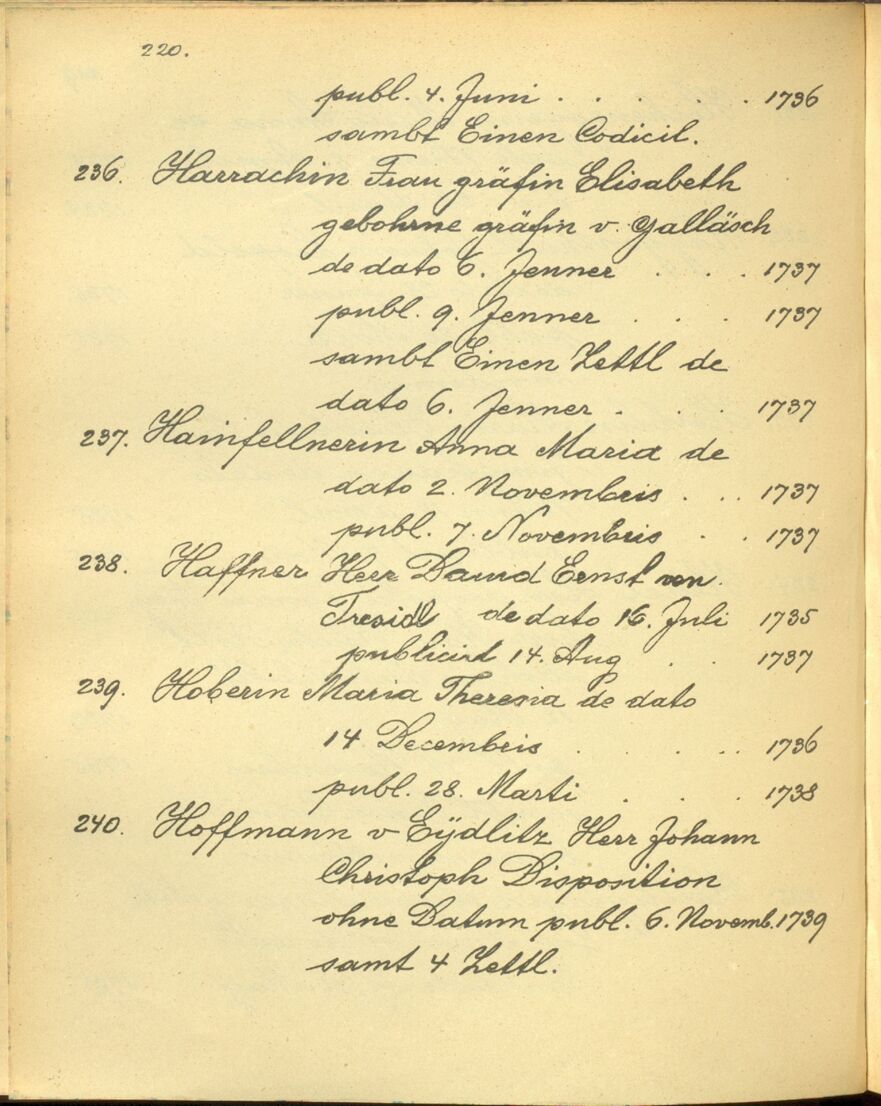 220.
publ. 4. Juni . . . . . 1736
sambt Einen Codicil.
236. Harrachin Frau gräfin Elisabeth
gebohrne gräfin v. Galläsch
de dato 6. Jenner . . . 1737
publ. 9. Jenner . . . 1737
sambt Einen Zettl de
dato 6. Jenner . . . 1737
237. Hainfellnerin Anna Maria de
dato 2. Novembris . . . 1737
publ. 7. Novembris . . 1737
238. Haffner Herr David Ernst von
de dato 16. Juli 1735
publicirt 14. Aug . . 1737
239. Hoberin Maria Theresia de dato
14 Decembris . . . . . 1736
publ. 28. Marti . . . 1738
240. Hoffmann v Eÿdlitz Herr Johann
Christoph Disposition
ohne Datum publ. 6. Novemb. 1739
samt 4 Zettl.